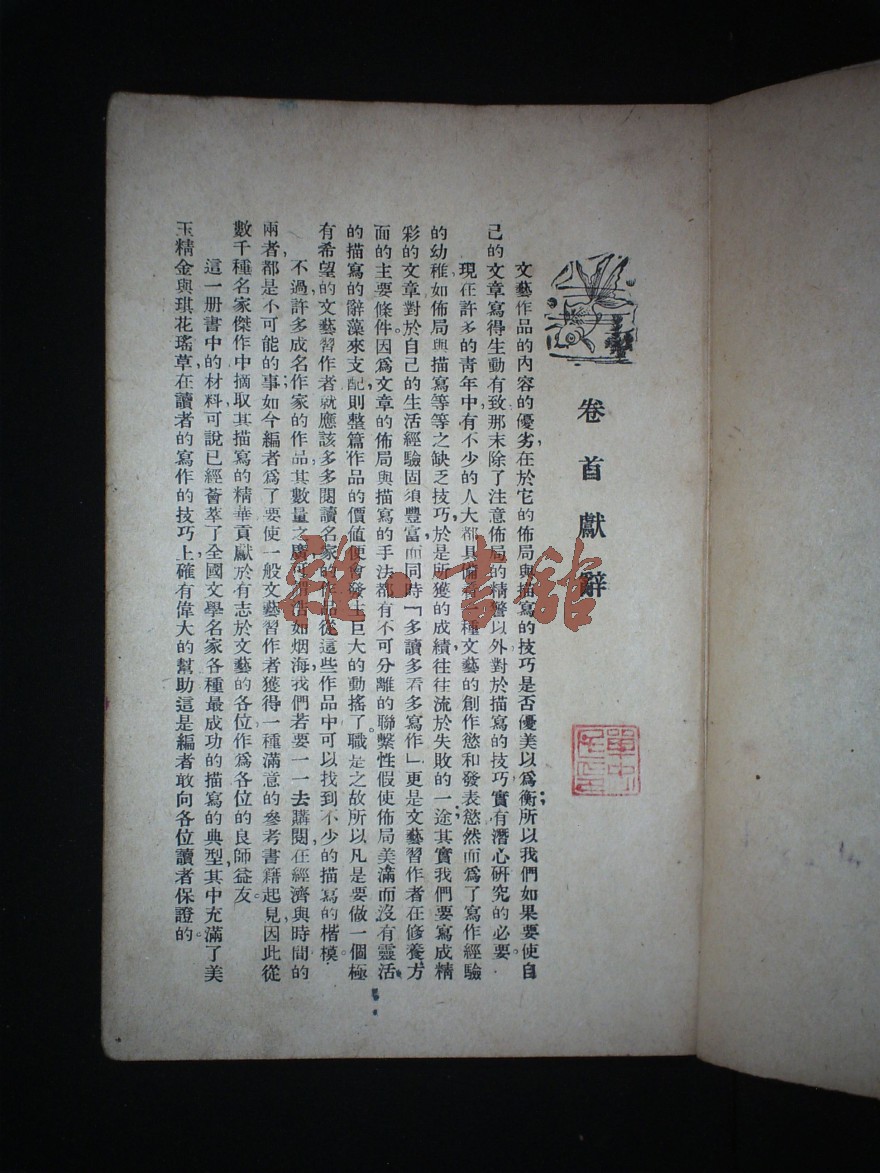 卷首獻辭
文藝作品的內容的優劣，在於它的佈局與描寫的技巧是否優美以爲衡；所以我們如果要使自
己的文章寫得生動有致，那末除了注意佈局的精警以外，對於描寫的技巧，實有潛心研究的必要。
現在許多的青年中，有不少的人，大都具備着一種文藝的創作慾和發表慾，然而爲了寫作經驗
的幼稚，如佈局與描寫等等之缺乏技巧，於是所獲的成績，往往流於失敗的一途；其實我們要寫成精
彩的文章，對於自己的生活經驗固須豐富，而同時「多讀多看多寫作」更是文藝習作者在修養方
面的主要條件。因爲文章的佈局與描寫的手法，都有不可分離的聯繫性，假使佈局美滿而沒有靈活
的描寫的辭藻來支配，則整篇作品的價値便會發生巨大的動搖了。職是之故，所以凡是要做一個極
有希望的文藝習作者，就應該多多閱讀名家的作品，從這些作品中，可以找到不少的描寫的楷模。
不過，許多成名作家的作品，其數量之廣，可謂浩如烟海，我們若要一一去購閱，在經濟與時間的
兩者，都是不可能的事；如今編者爲了要使一般文藝習作者獲得一種滿意的參考書籍起見，因此從
數千種名家傑作中摘取其描寫的精華，貢獻於有志於文藝的各位，作爲各位的良師益友。
這一册書中的材料，可說已經薈萃了全國文學名家各種最成功的描寫的典型，其中充滿了美
玉精金與琪花瑤草，在讀者的寫作的技巧上，確有偉大的幫助，這是編者敢向各位讀者保證的。
雜·書館